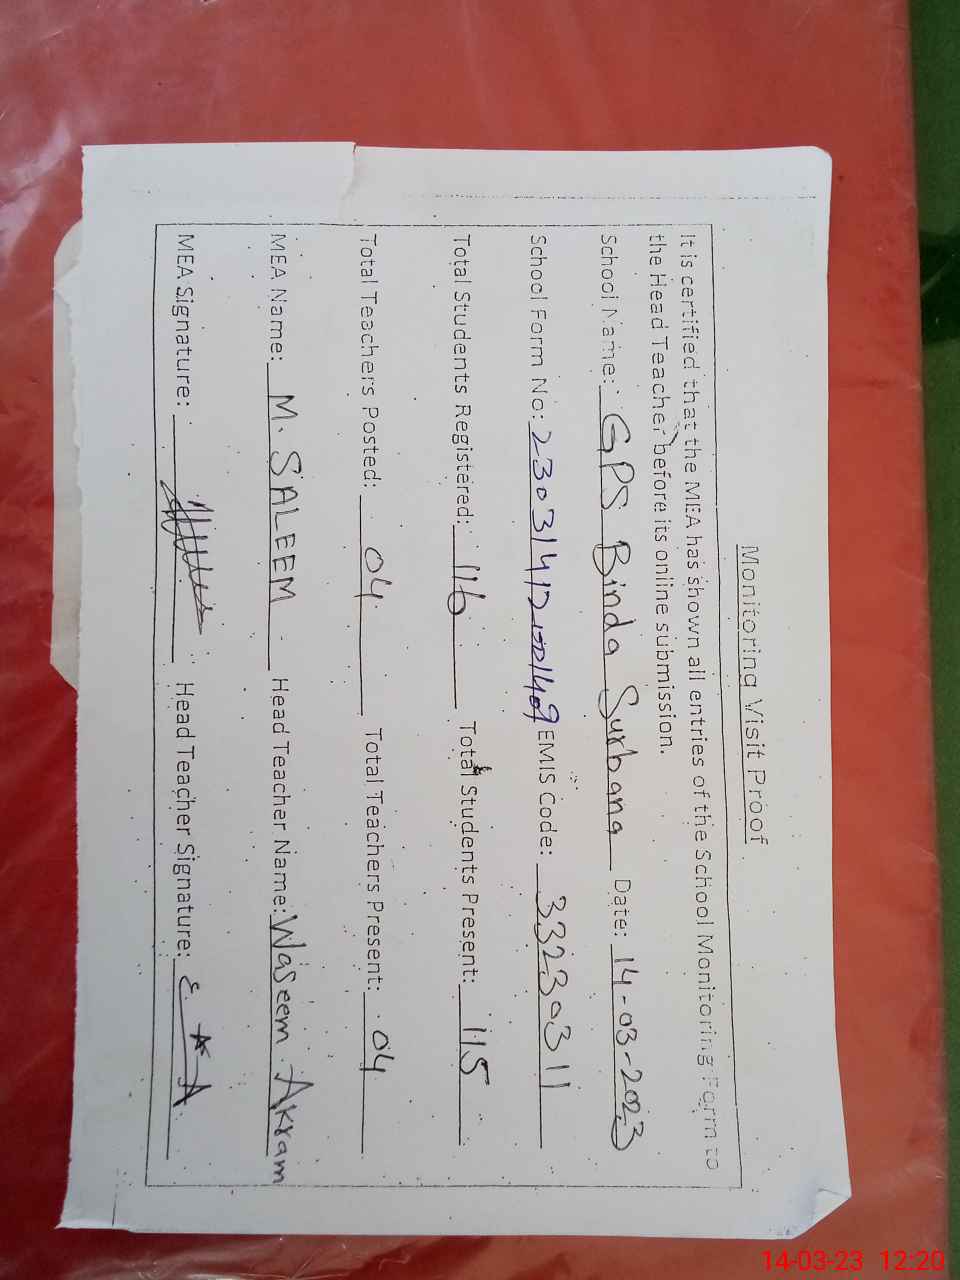 Monitoring Visit Proof
It is certified that the MEA has shown all entries of the School Monitoring Form to
the Head Teacher before its online submission.
School Name: GPS Binda Surbana Date: 14-03-2023
School Form No: EMIS Code: 33230311
Total Students Registered: 116 Total Students Present: 115
Total Teachers Posted: 04 Total Teachers Present: 04
MEA Name: M. SALEEM Head Teacher Name: Waseem Akram
MEA Signature: Head Teacher Signature:
14-03-23 12:20